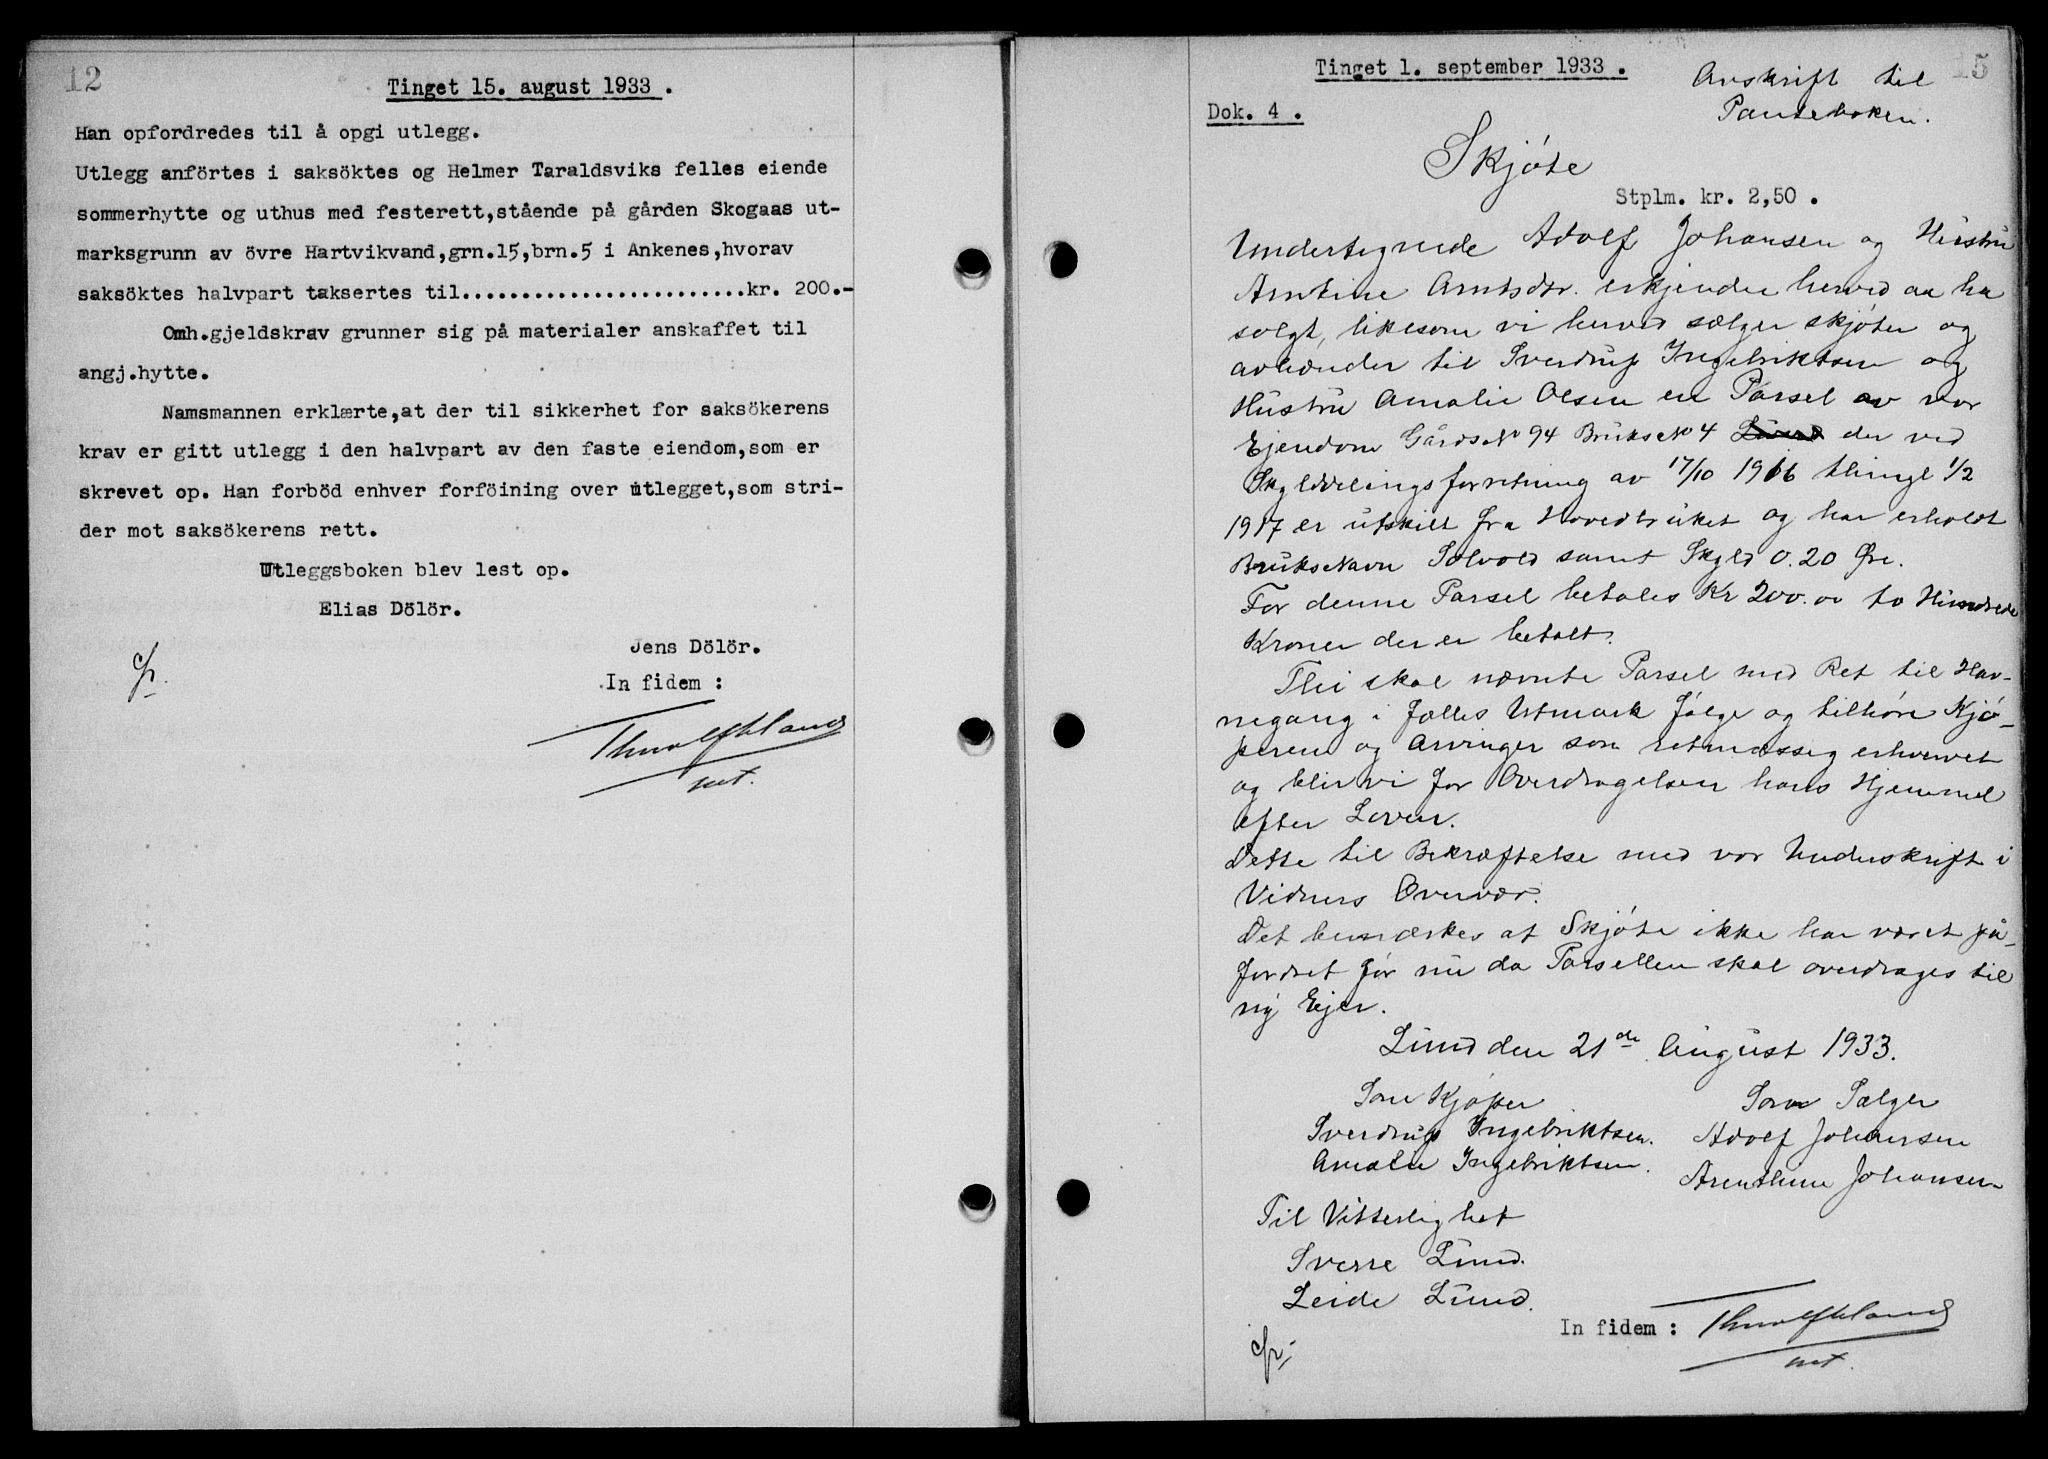 12
Tinget 15. august 1933 .
Han opfordredes til å opgi utlegg.
Utlegg anförtes i saksöktes og Helmer Taraldsviks felles eiende
sommerhytte og uthus med festerett,stående på gården Skogaas ut-
marksgrunn av övre Hartvikvand,grn.15,brn.5 i Ankenes,hvorav
saksöktes halvpart taksertes til........................kr. 200.-
Omh.gjeldskrav grunner sig på materialer anskaffet til
angj.hytte.
Namsmannen erklærte,at der til sikkerhet for saksökerens
krav er gitt utlegg i den halvpart av den faste eiendom,som er
skrevet op. Han forböd enhver forföining over utlegget,som stri-
der mot saksökerens rett.
Utleggsboken blev lest op.
Elias Dölör.
Jens Dölör.
In fidem :
15
Tinget 1. september 1933 .
Avskrift til
Panteboken.
Dok. 4 .
Skjøte
Stplm. kr. 2,50 .
Undertegnede Adolf Johansen og Hustru
Arntine Arntsdtr. erkjender herved aa ha
solgt, likesom vi herved sælger skjøter og
avhænder til Sverdrup Ingebriktsen og
Hustru Amalie Olsen en Parsel av vor
Ejendom GårdsNº 94 BruksNº 4 Lund der ved
Skylddelingsforretning av 17/10 1916 thingl 1/2
1917 er utskilt fra Hovedbruket og har erholdt
BruksNavn Solvold samt Skyld 0.20 Øre.
For denne Parsel betales Kr 200.00 to Hundrede
Kroner der er betalt.
Thi skal nævnte Parsel med Ret til Hav-
negang i fælles Utmark følge og tilhøre Kjø-
peren og Arvinger som retmæssig erhvervet
og blir vi for Overdragelsen hans Hjemmel
efter Loven.
Dette til Bekræftelse med vor Underskrift i
Vidners Overvær.
Det bemærkes at Skjøte ikke har været på-
fordret før nu da Parsellen skal overdrages til
ny Ejer.
Lund den 21de August 1933.
Som Kjøper
Som Sælger
Sverdrup Ingebriktsen.
Adolf Johansen
Amalie Ingebriktsen.
Arenthine Johansen
Til Vitterlighet
Sverre Lund.
Leide Lund.
In fidem :